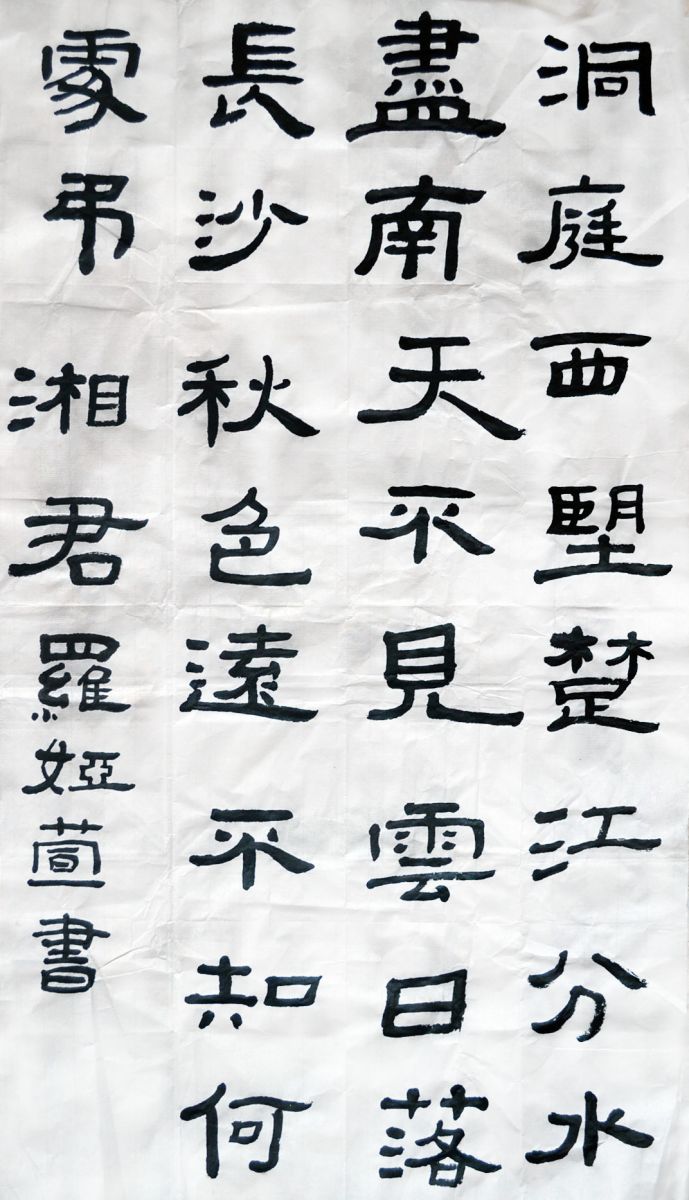 洞庭西望楚江分水
盡南天不見雲日落
長沙秋色遠不知何
處弔湘君羅婭萱書